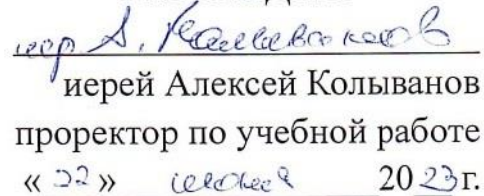 иер А.
иерей Алексей Колыванов
проректор по учебной работе
« 22 » июня 20 23 г.